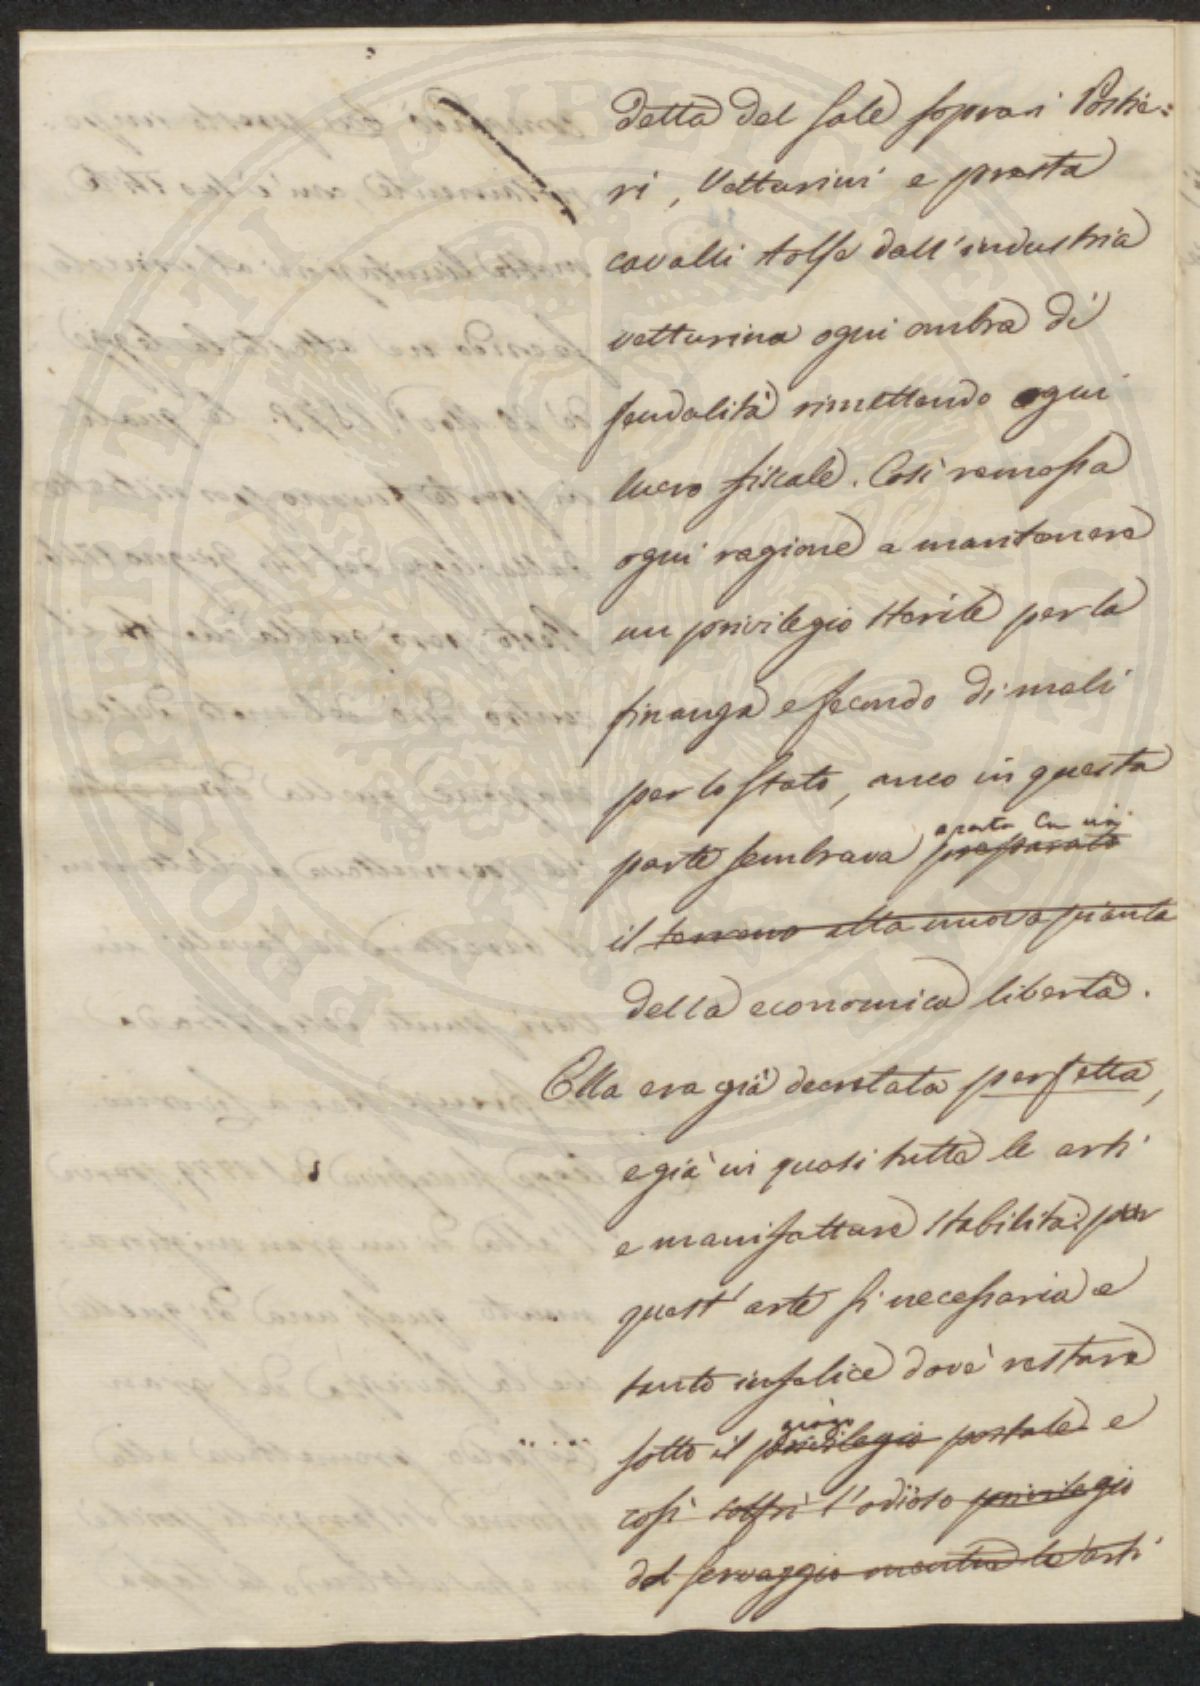 detta del Sale sopra i Postie=
ri, Vetturini e presta
cavalli tolse dall'industria
vetturina ogni ombra di
feudalità rimettendo ogni
lucro fiscale. Così remossa
ogni ragione a mantenere
un privilegio sterile per la
finanza e fecondo di mali
per lo Stato, anco in questa
aperta la via
parte sembrava preparato
il terreno alla nuova pianta
della economica libertà.
Ella era già decretata perfetta,
e già in quasi tutte le arti
e manifatture stabilita: pur
quest'arte sì necessaria e
tanto infelice dovè restare
giogo
sotto il privilegio postale e
così soffrì l'odioso privilegio
del servaggio mentre le arti